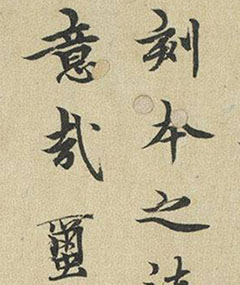 刻本之
意哉